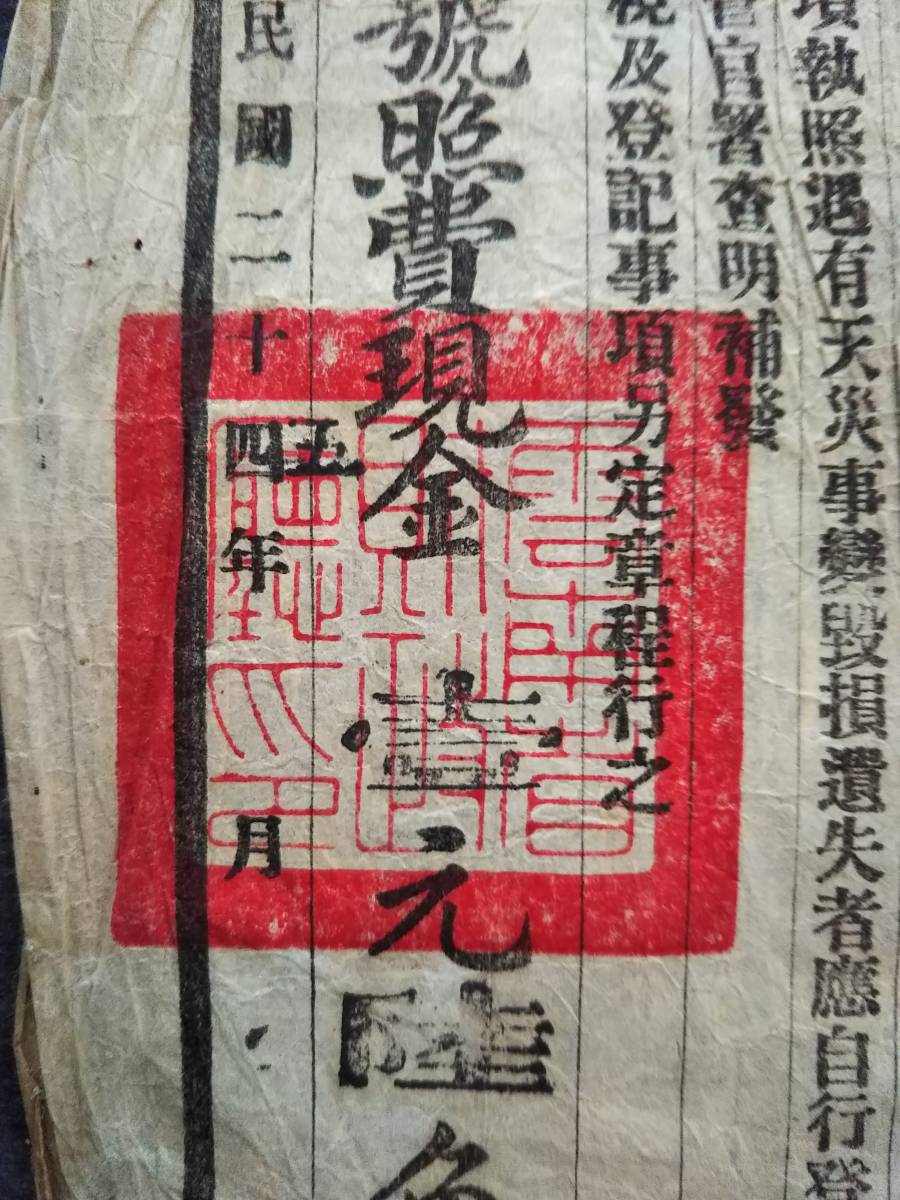 項執照遇有天災事變毀損遺失者應自行登
管官署查明補發
稅及登記事項另定章程行之
號照費現金壹元陸角
民國二十四年 月
五